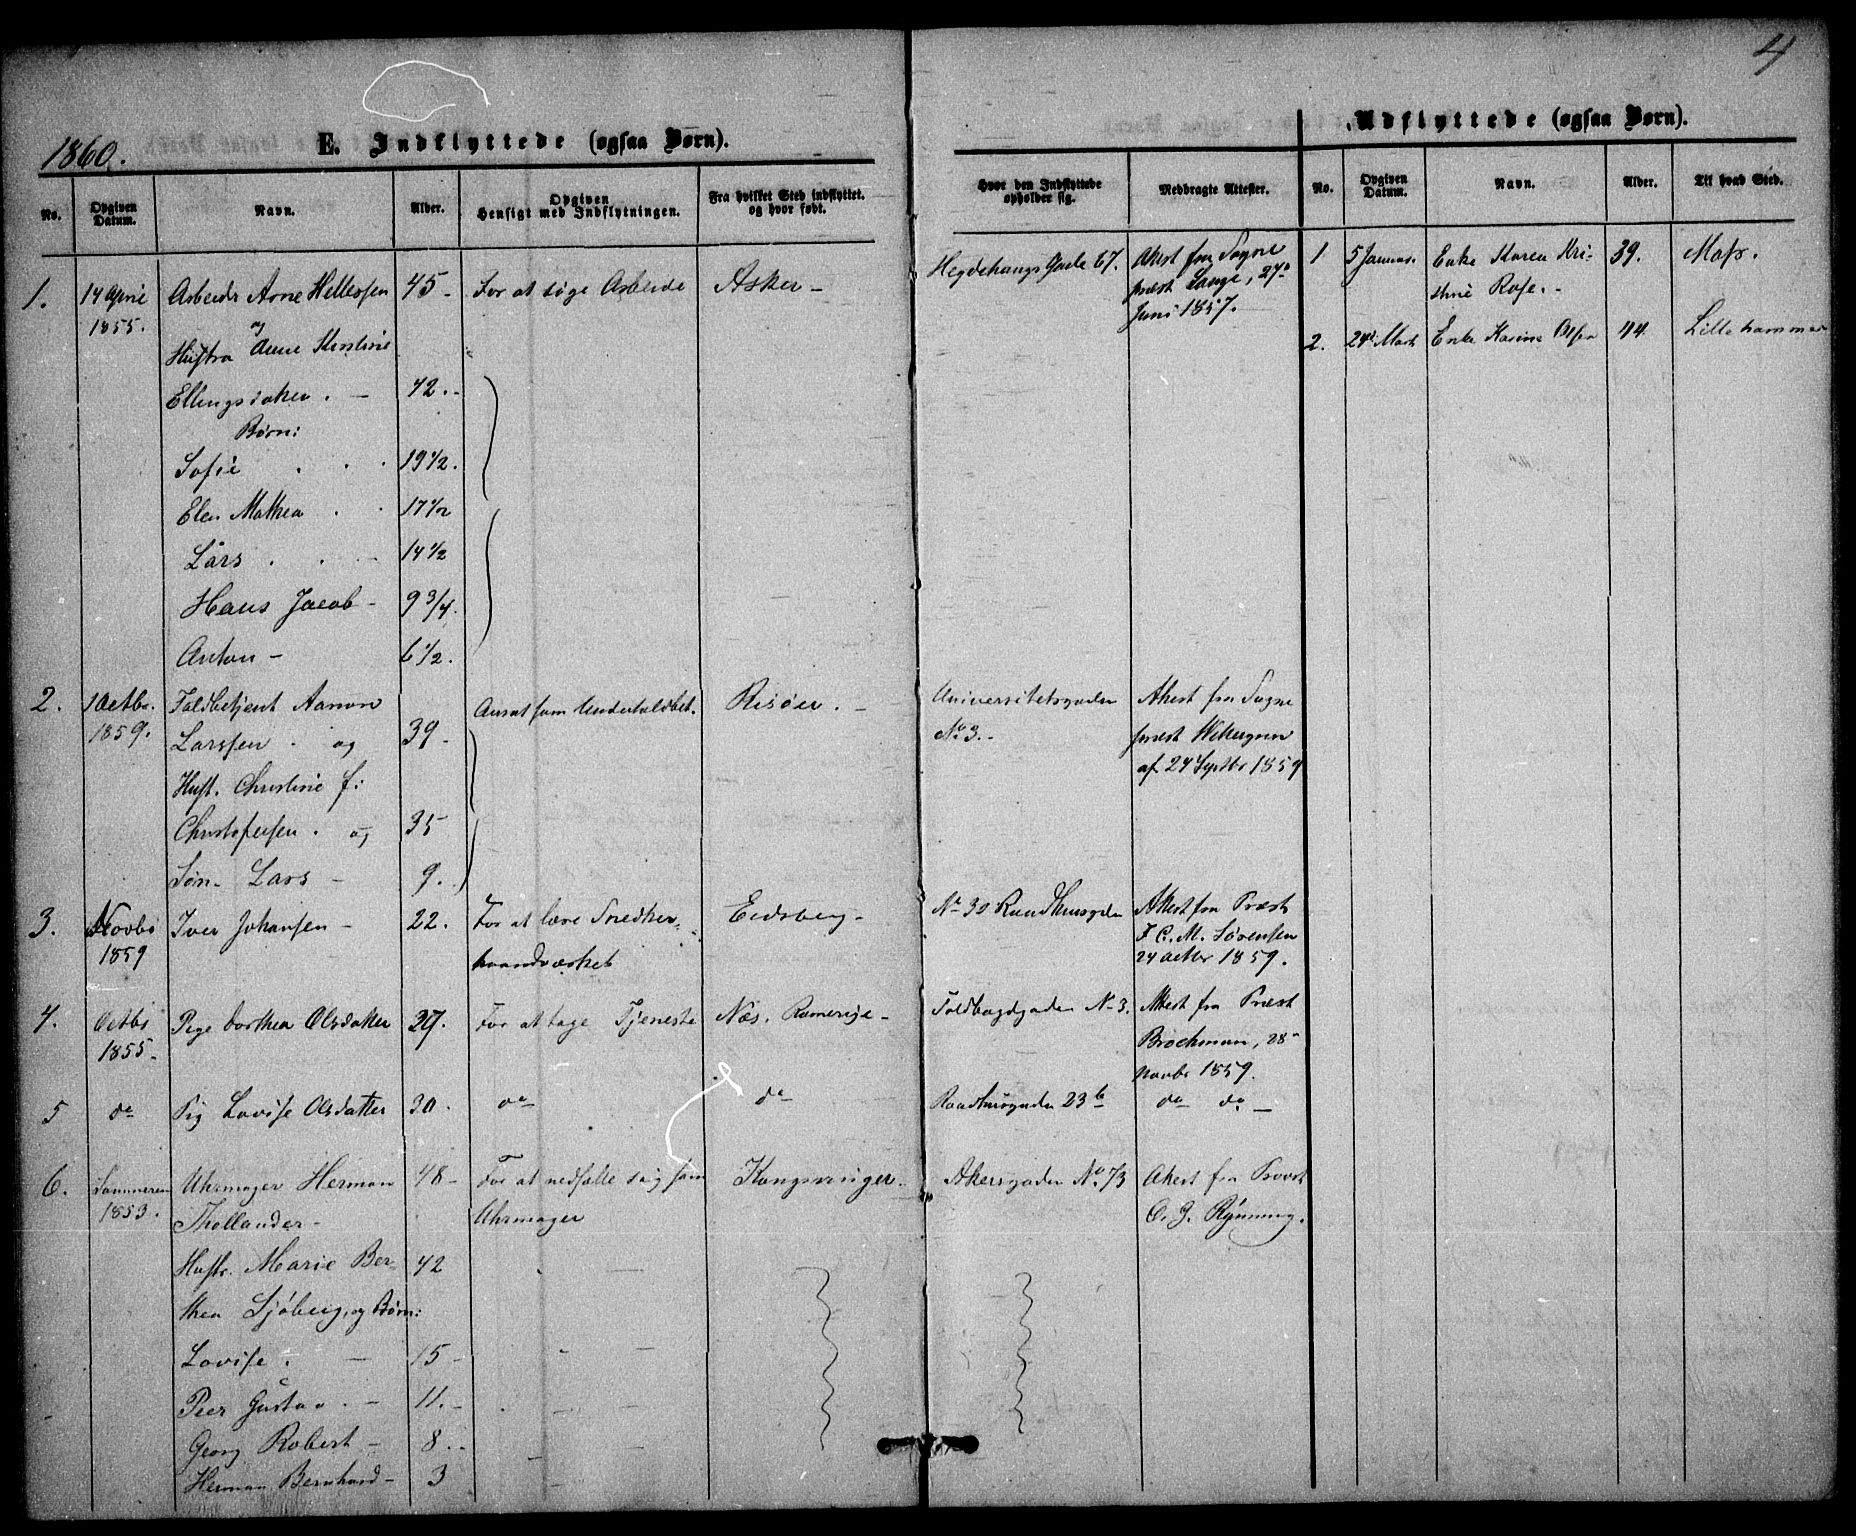 4
1860.
E. Indflyttede (ogsaa Børn).
No.
Opgiven Datum.
Navn.
Alder.
Opgiven Hensigt med Indflytningen.
Fra hvilket Sted indflyttet. og hvor født.
Hvor den Indflyttede opholder sig.
Medbragte Attester.
Udflyttede (ogsaa Børn).
No.
Opgiven Datum.
Navn.
Alder.
Til hvad Sted.
1. 14 April Arbeider Arne Hellessen 45 - For at søge Arbeide Asker -
1855. og
Hustru Anne Kirstine
Ellingsdatter . - 42. -
Børn:
Sofie . . . 19 1/2.
Elen Mathea . . 17 1/2
Lars . . . 14 1/2
Hans Jacob - 9 3/4.
Anton - 6 1/2.
Hegdehaugs Gade 67. Attest fra Sogne
præst Lange, 27de
Juni 1857.
2. 1 Octbr. Toldbetjent Aanon Ansat som Undertoldbet. Risøer. -
1859. Larssen . og 39 -
Hust. Christine f:
Christofersen . og 35
Søn - Lars - 9.
Universitetsgaden Attest fra Sogne
No 3. - præst
af 24 Septbr 1859
3. Novbr Iver Johansen - 22. For at lære Snedker- Eidsberg -
1859 haandværket
No 30 Raadhusgden Attest fra Præst
F. C. M. Sørensen
24 Octbr 1859.
4. Octbr Pige Dorthea Olsdatter 27. For at tage Tjeneste Næs. Romerige -
1855 -
Toldbodgaden No 3. Attest fra Præst
Brochman, 28
Novbr 1859.
5 do Pig Lovise Olsdatter 30. do do
Raadhusgaden 23 b do do -
6. Sommeren Uhrmager Herman 48 - For at nedsætte sig som Kongsvinger.
1853. Thollander - Uhrmager
Hustr. Marie Ber- 42
thea Sjöberg, og Børn:
Lovise . - 15 -
Peer Gustav . - 11. -
Georg Robert - 8. -
Herman Bernhard - 3
Akersgaden No 73 Attest fra Provst
O. G. Rynning.
1 5 Januar Enke Karen Kri- 39. Moss.
stine Rose. -
2. 24 Marts Enke Karine 44. Lillehammer